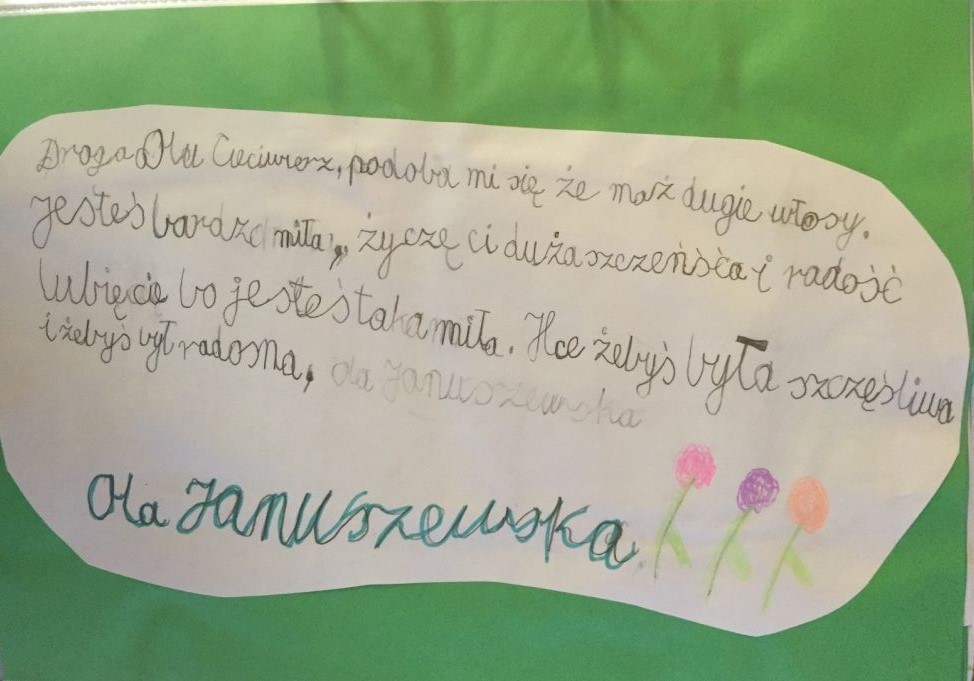 Droga Olu Cieciwerz, podoba mi się że maż dugie włosy.
jesteś bardzo miła,, życzę ci duża szczeńśća i radość
lubięcię bo jesteś taka miła. Hce żebyś była szczęśliwa
i żebyś był radosna, ola Januszewska
Ola Januszewska.